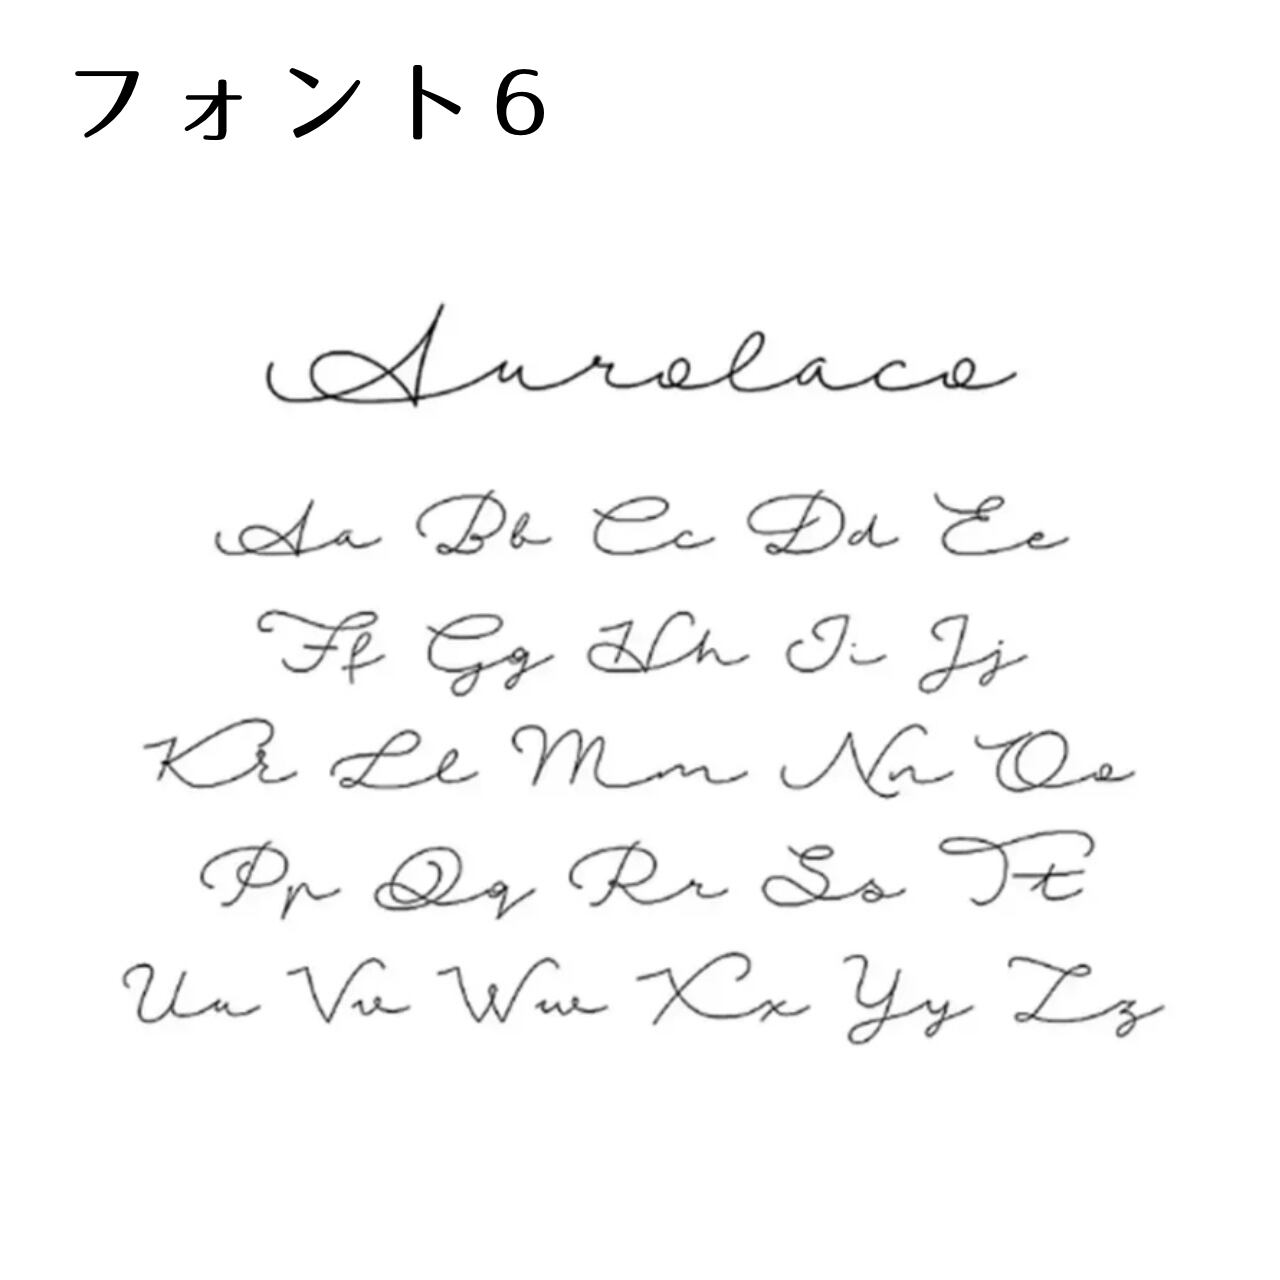 フォント6
Aurolaco
Aa Bb Cc Dd Ee
Ff Gg Hh Ii Jj
Kk Ll Mm Nn Oo
Pp Qq Rr Ss Tt
Uu Vv Ww Xx Yy Zz